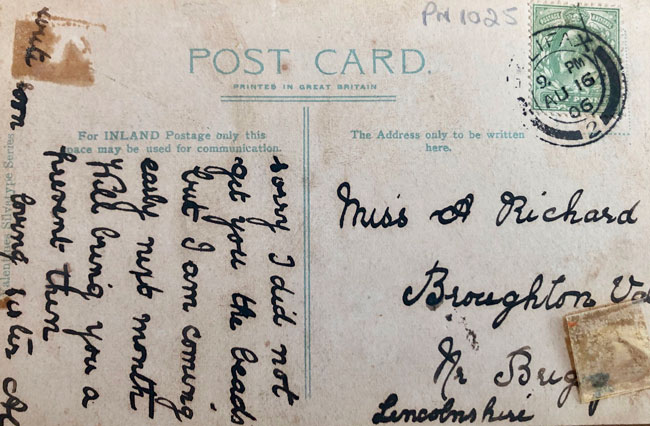 PM 1025
POST CARD.
PRINTED IN GREAT BRITAIN
For INLAND Postage only this
space may be used for communication.
The Address only to be written
here.
IFAX
9 PM
AU 16
06
2
sorry I did not
get you the beads
but I am coming
early next month
Will bring you a
present then
loving sister
Miss A Richard
Broughton
Nr Brig
Lincolnshire
alentines Silvatype Series